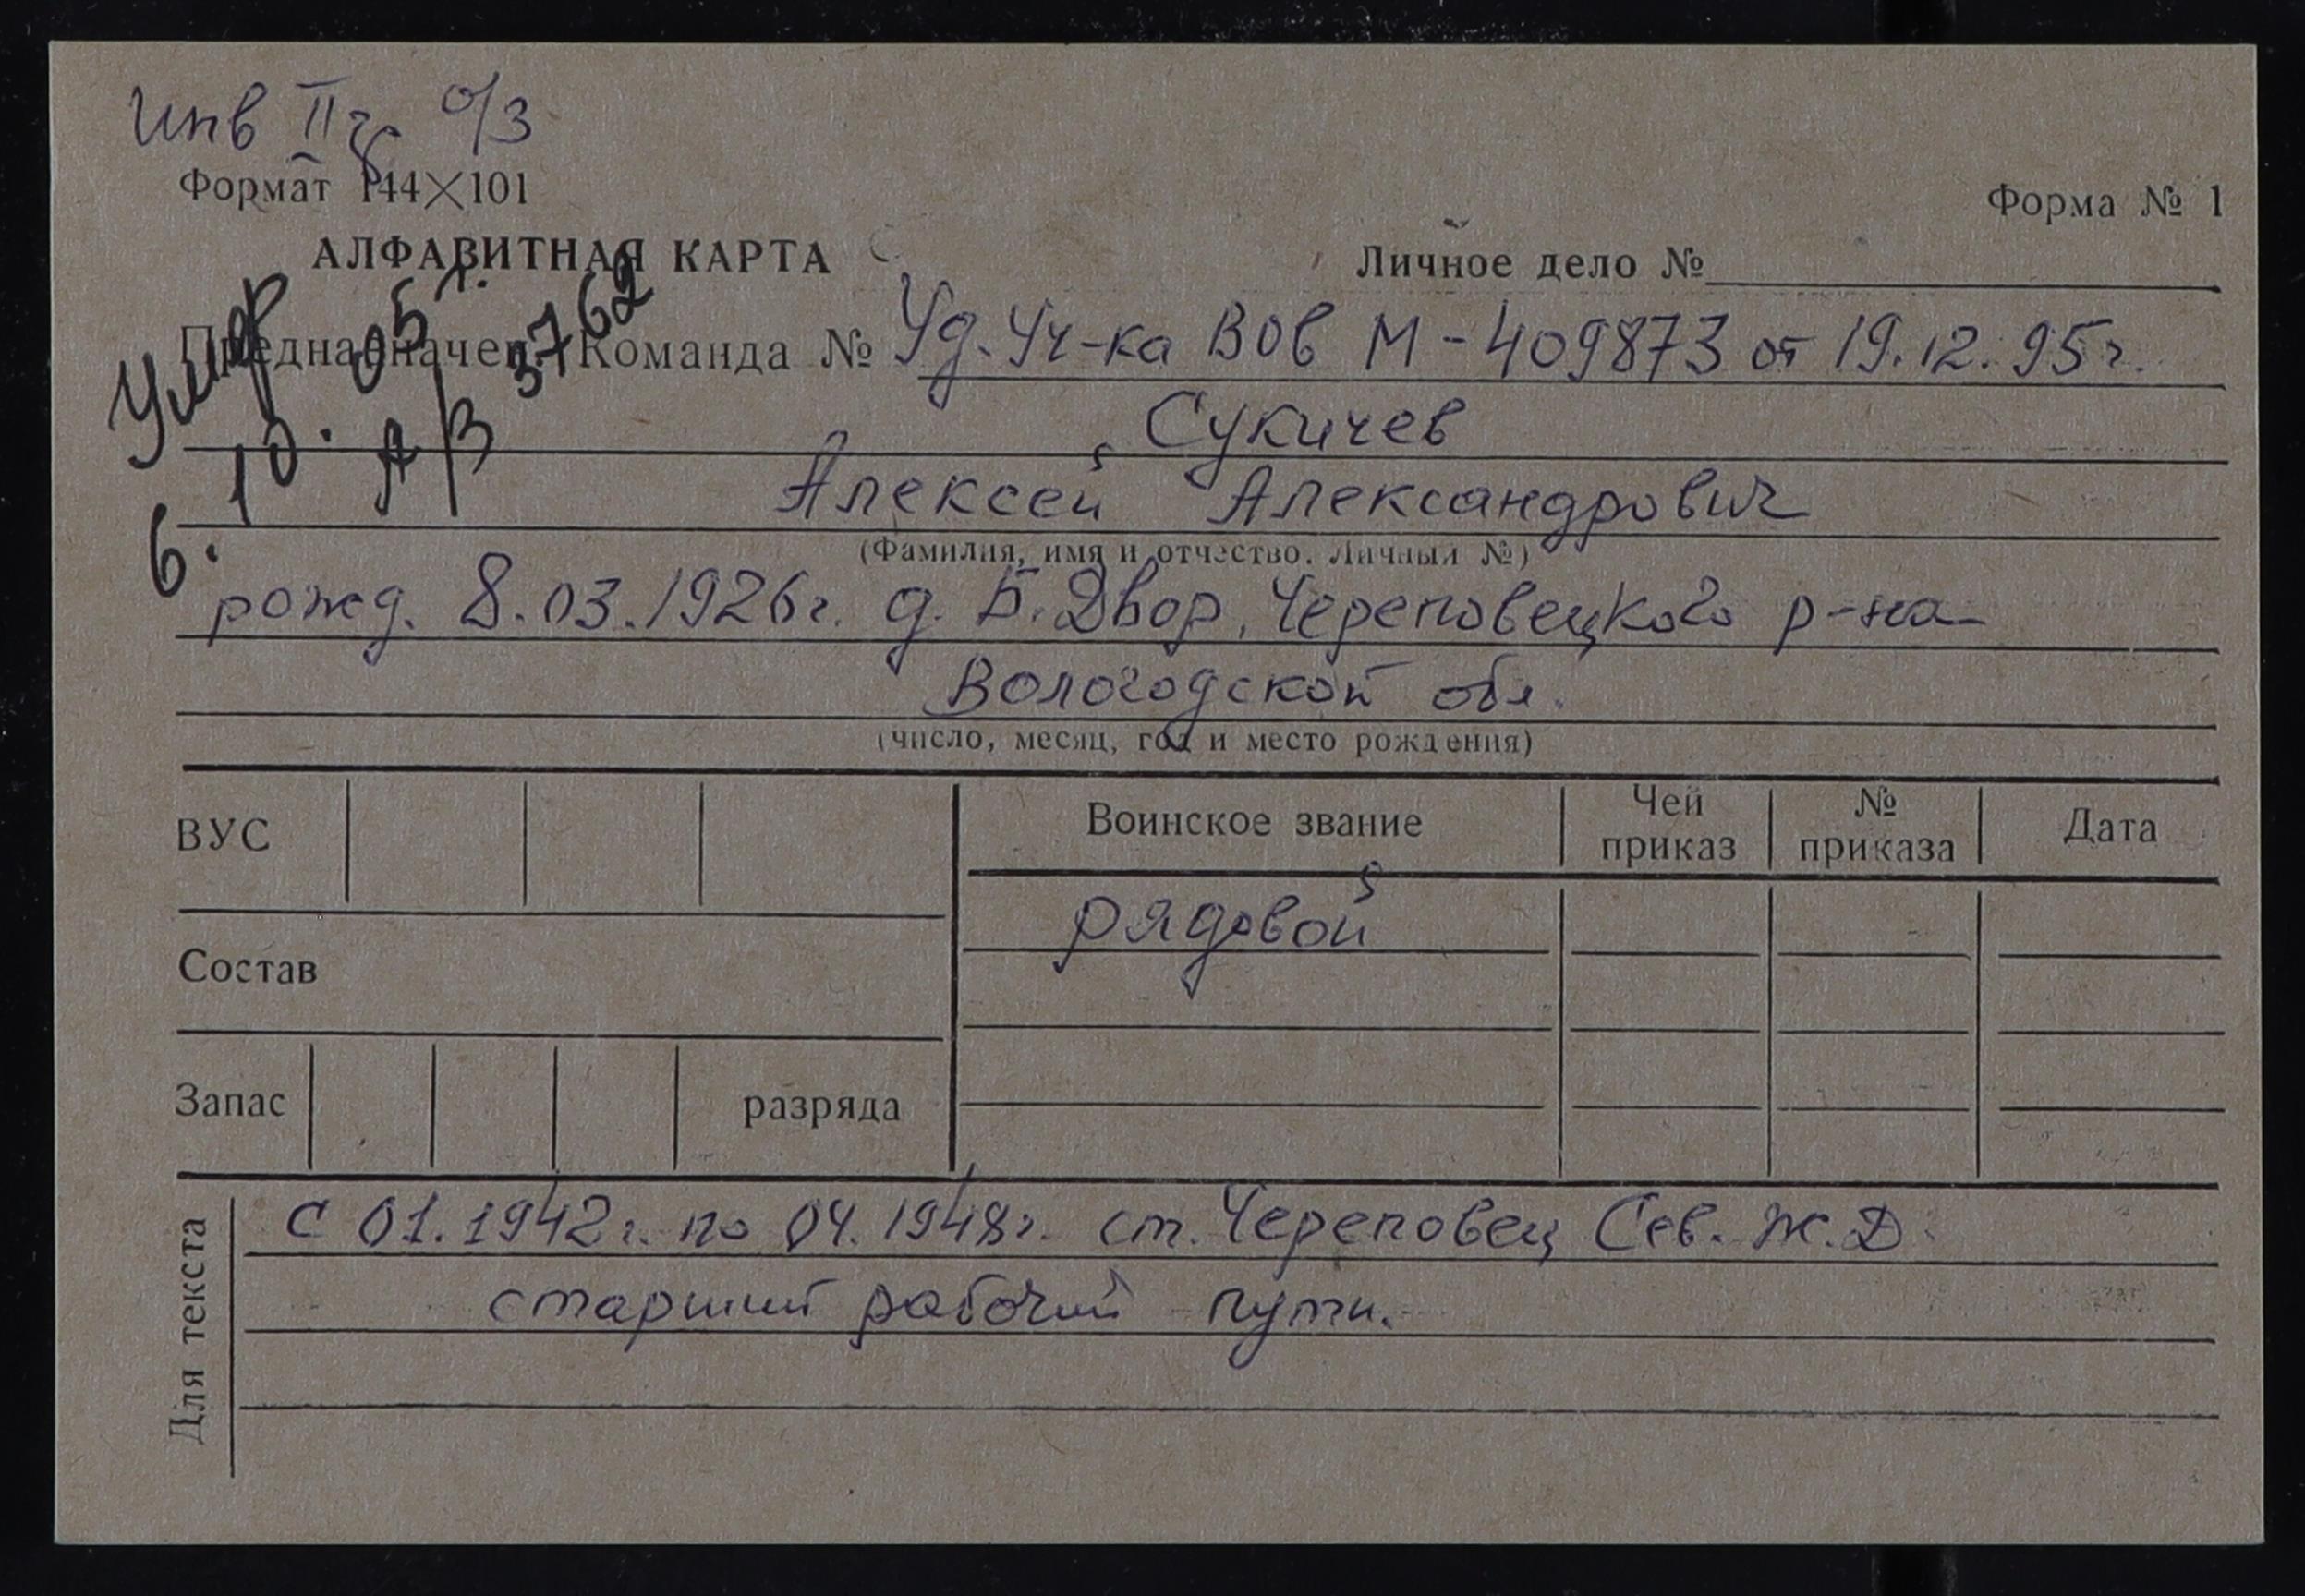 Инв II гр о/з
Формат 144×101
Форма № 1
АЛФАВИТНАЯ КАРТА
Личное дело №
Предназначен. Команда № Уд. Уч-ка ВОВ М-409873 от 19.12.95г.
Умер
6.10.05г.
А/З 3762
Сукичев
Алексей Александрович
(Фамилия, имя и отчество. Личный №)
рожд. 8.03.1926г. д. Б. Двор, Череповецкого р-на
Вологодской обл.
(число, месяц, год и место рождения)
ВУС
Воинское звание
Чей приказ
№ приказа
Дата
рядовой
Состав
Запас
разряда
Для текста
с 01.1942г. по 04.1948г. ст. Череповец Сев. Ж.Д.
старший рабочий пути.